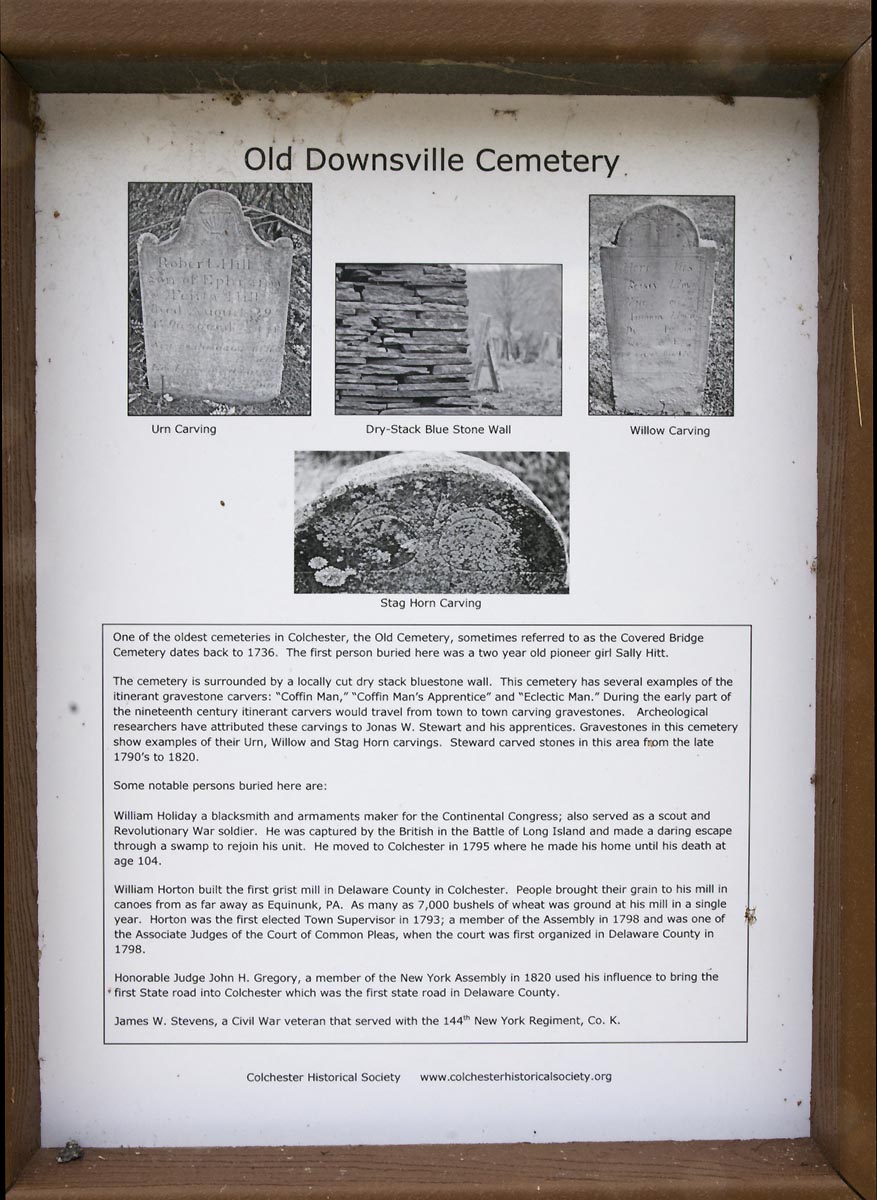 Old Downsville Cemetery
Robert Hill
Son of Ephraim
Hill
Urn Carving
Dry-Stack Blue Stone Wall
Willow Carving
Stag Horn Carving
One of the oldest cemeteries in Colchester, the Old Cemetery, sometimes referred to as the Covered Bridge
Cemetery dates back to 1736.  The first person buried here was a two year old pioneer girl Sally Hitt.
The cemetery is surrounded by a locally cut dry stack bluestone wall.  This cemetery has several examples of the
itinerant gravestone carvers: “Coffin Man,” “Coffin Man’s Apprentice” and “Eclectic Man.” During the early part of
the nineteenth century itinerant carvers would travel from town to town carving gravestones.   Archeological
researchers have attributed these carvings to Jonas W. Stewart and his apprentices. Gravestones in this cemetery
show examples of their Urn, Willow and Stag Horn carvings.  Steward carved stones in this area from the late
1790’s to 1820.
Some notable persons buried here are:
William Holiday a blacksmith and armaments maker for the Continental Congress; also served as a scout and
Revolutionary War soldier.  He was captured by the British in the Battle of Long Island and made a daring escape
through a swamp to rejoin his unit.  He moved to Colchester in 1795 where he made his home until his death at
age 104.
William Horton built the first grist mill in Delaware County in Colchester.  People brought their grain to his mill in
canoes from as far away as Equinunk, PA.  As many as 7,000 bushels of wheat was ground at his mill in a single
year.  Horton was the first elected Town Supervisor in 1793; a member of the Assembly in 1798 and was one of
the Associate Judges of the Court of Common Pleas, when the court was first organized in Delaware County in
1798.
Honorable Judge John H. Gregory, a member of the New York Assembly in 1820 used his influence to bring the
first State road into Colchester which was the first state road in Delaware County.
James W. Stevens, a Civil War veteran that served with the 144th New York Regiment, Co. K.
Colchester Historical Society    www.colchesterhistoricalsociety.org